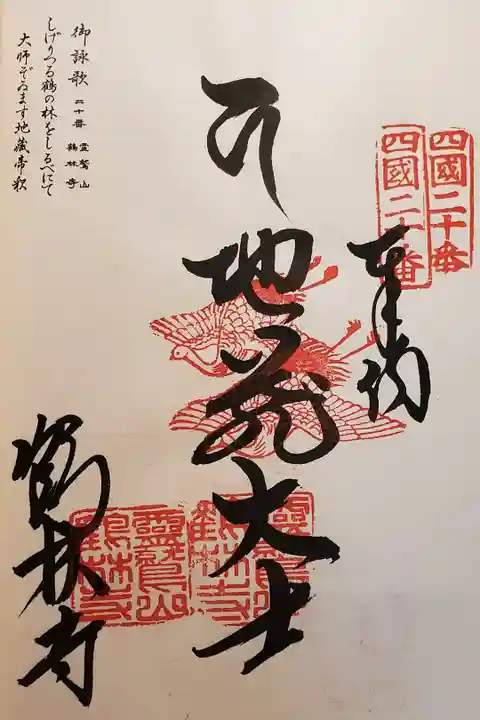 四國二十番
四國二十番
奉納
地蔵大士
靈鷲山
鶴林寺
靈鷲山
鶴林寺
鶴林寺
御詠歌 二十番 霊鷲山 鶴林寺
しげりつる鶴の林をしるべにて
大師ぞいます地蔵帝釈